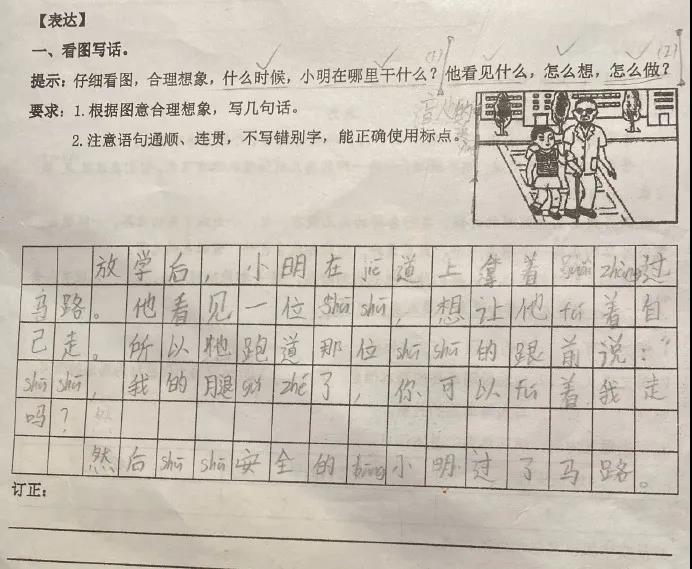 【表达】
一、看图写话。
提示：仔细看图，合理想象，什么时候，小明在哪里干什么？他看见什么，怎么想，怎么做？
(1)
(2)
要求：1.根据图意合理想象，写几句话。
2.注意语句通顺、连贯，不写错别字，能正确使用标点。
放学后，小明在jiē道上拿着 过
马路。他看见一位shū shū，想让他fú着自
己走。所以他跑道那位shū shū的跟前说：“
shū shū，我的腿gǔ zhé了，你可以fú着我走
吗？
然后shū shū安全的 小明过了马路。
订正：